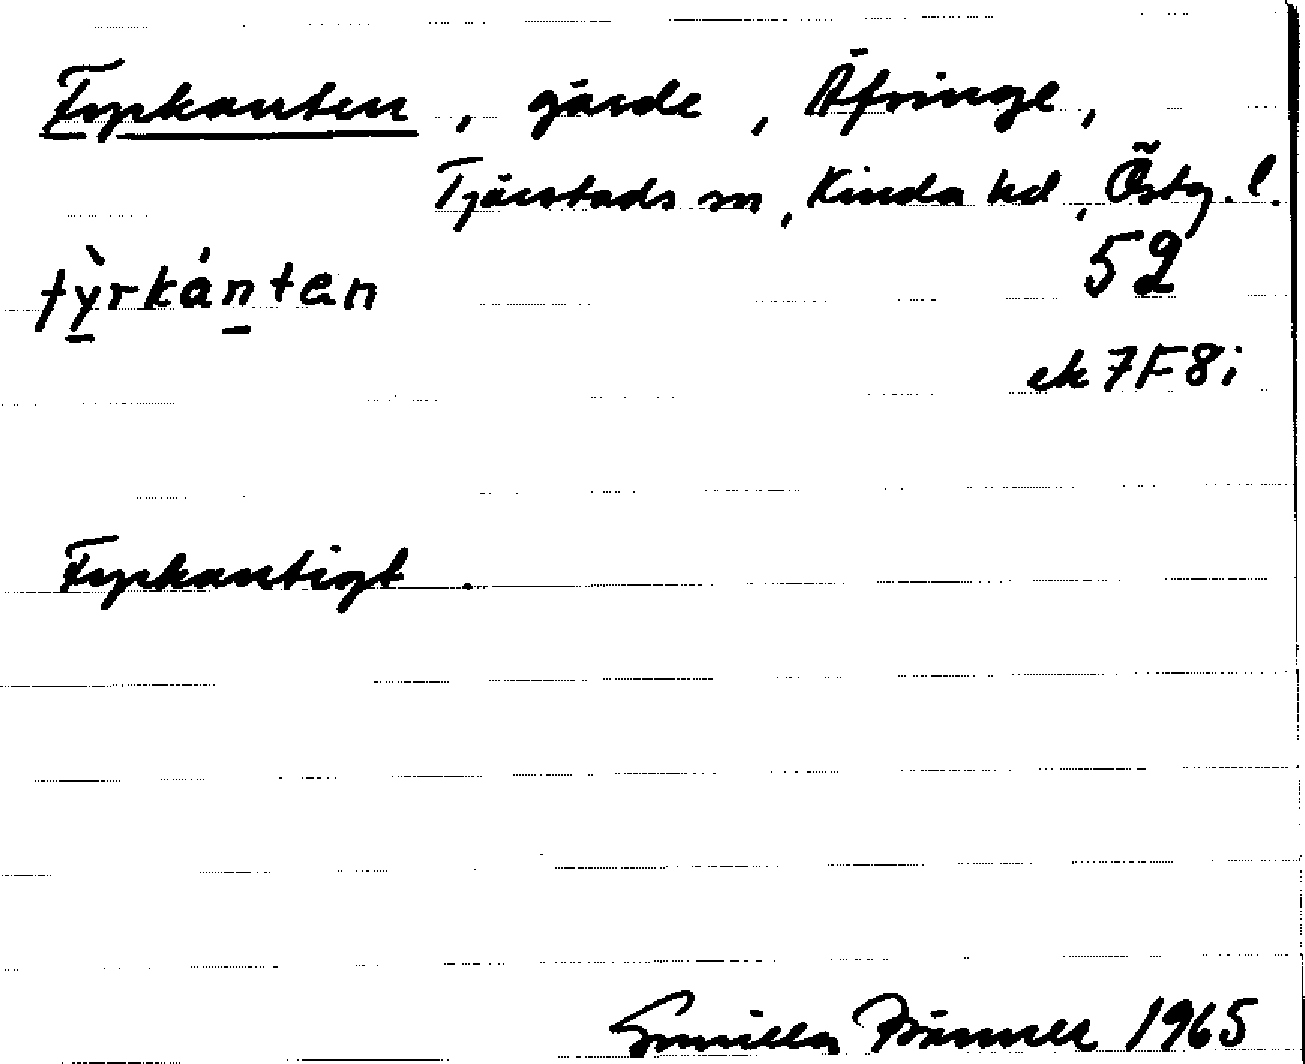 Fyrkanten, gärde, Äfringe,
Tjärstads sn, Kinda hd, Östg. l.
fỳ̠rkán̠tən
52
ek 7F8i
Fyrkantigt.
Gunilla 1965